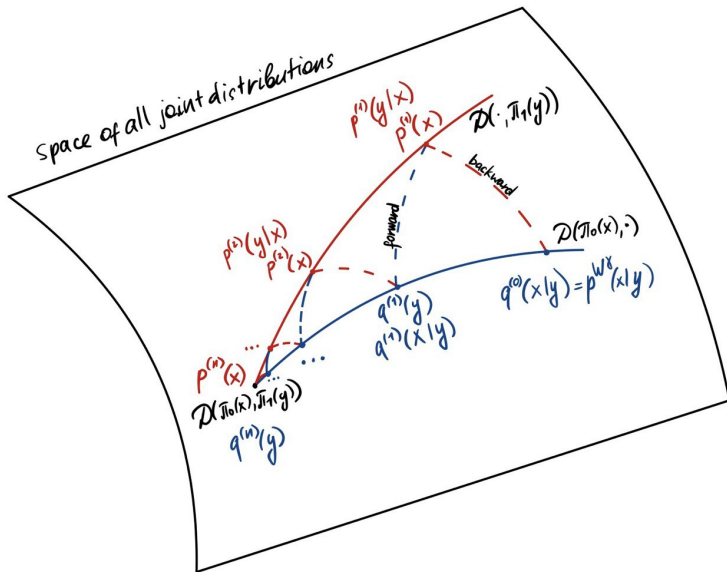 space of all joint distributions
p⁽¹⁾(y|x)
p⁽¹⁾(x)
𝒟(·, π₁(y))
backward
forward
𝒟(π₀(x), ·)
q⁽⁰⁾(x|y) = p^{Wγ}(x|y)
p⁽²⁾(y|x)
p⁽²⁾(x)
q⁽¹⁾(y)
q⁽¹⁾(x|y)
...
...
p⁽ⁿ⁾(x)
...
𝒟(π₀(x), π₁(y))
q⁽ⁿ⁾(y)